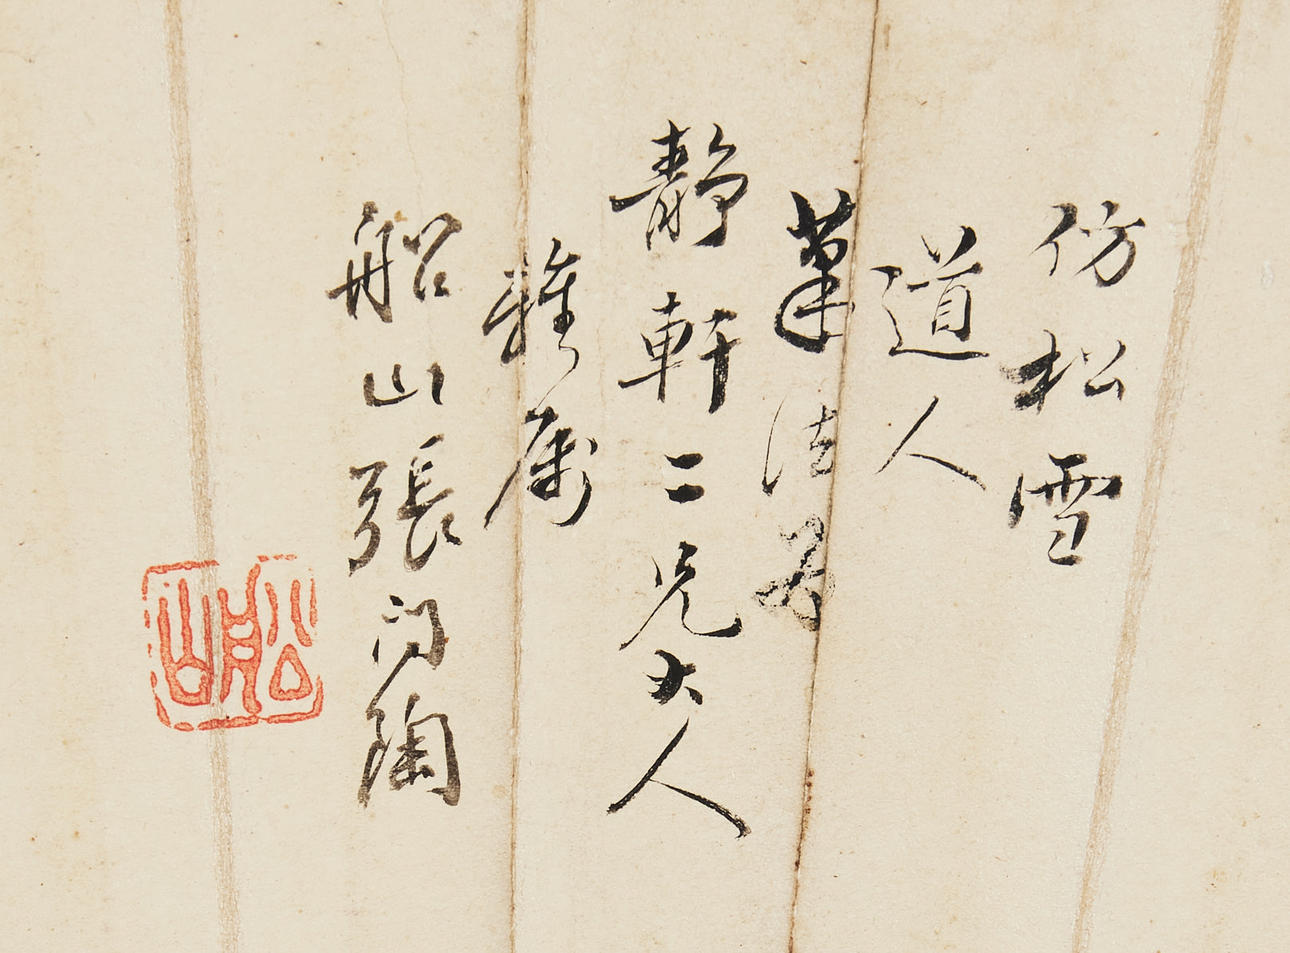 仿松雪
道人
筆法為
静軒二兄大人
雅属
船山張問陶
船山